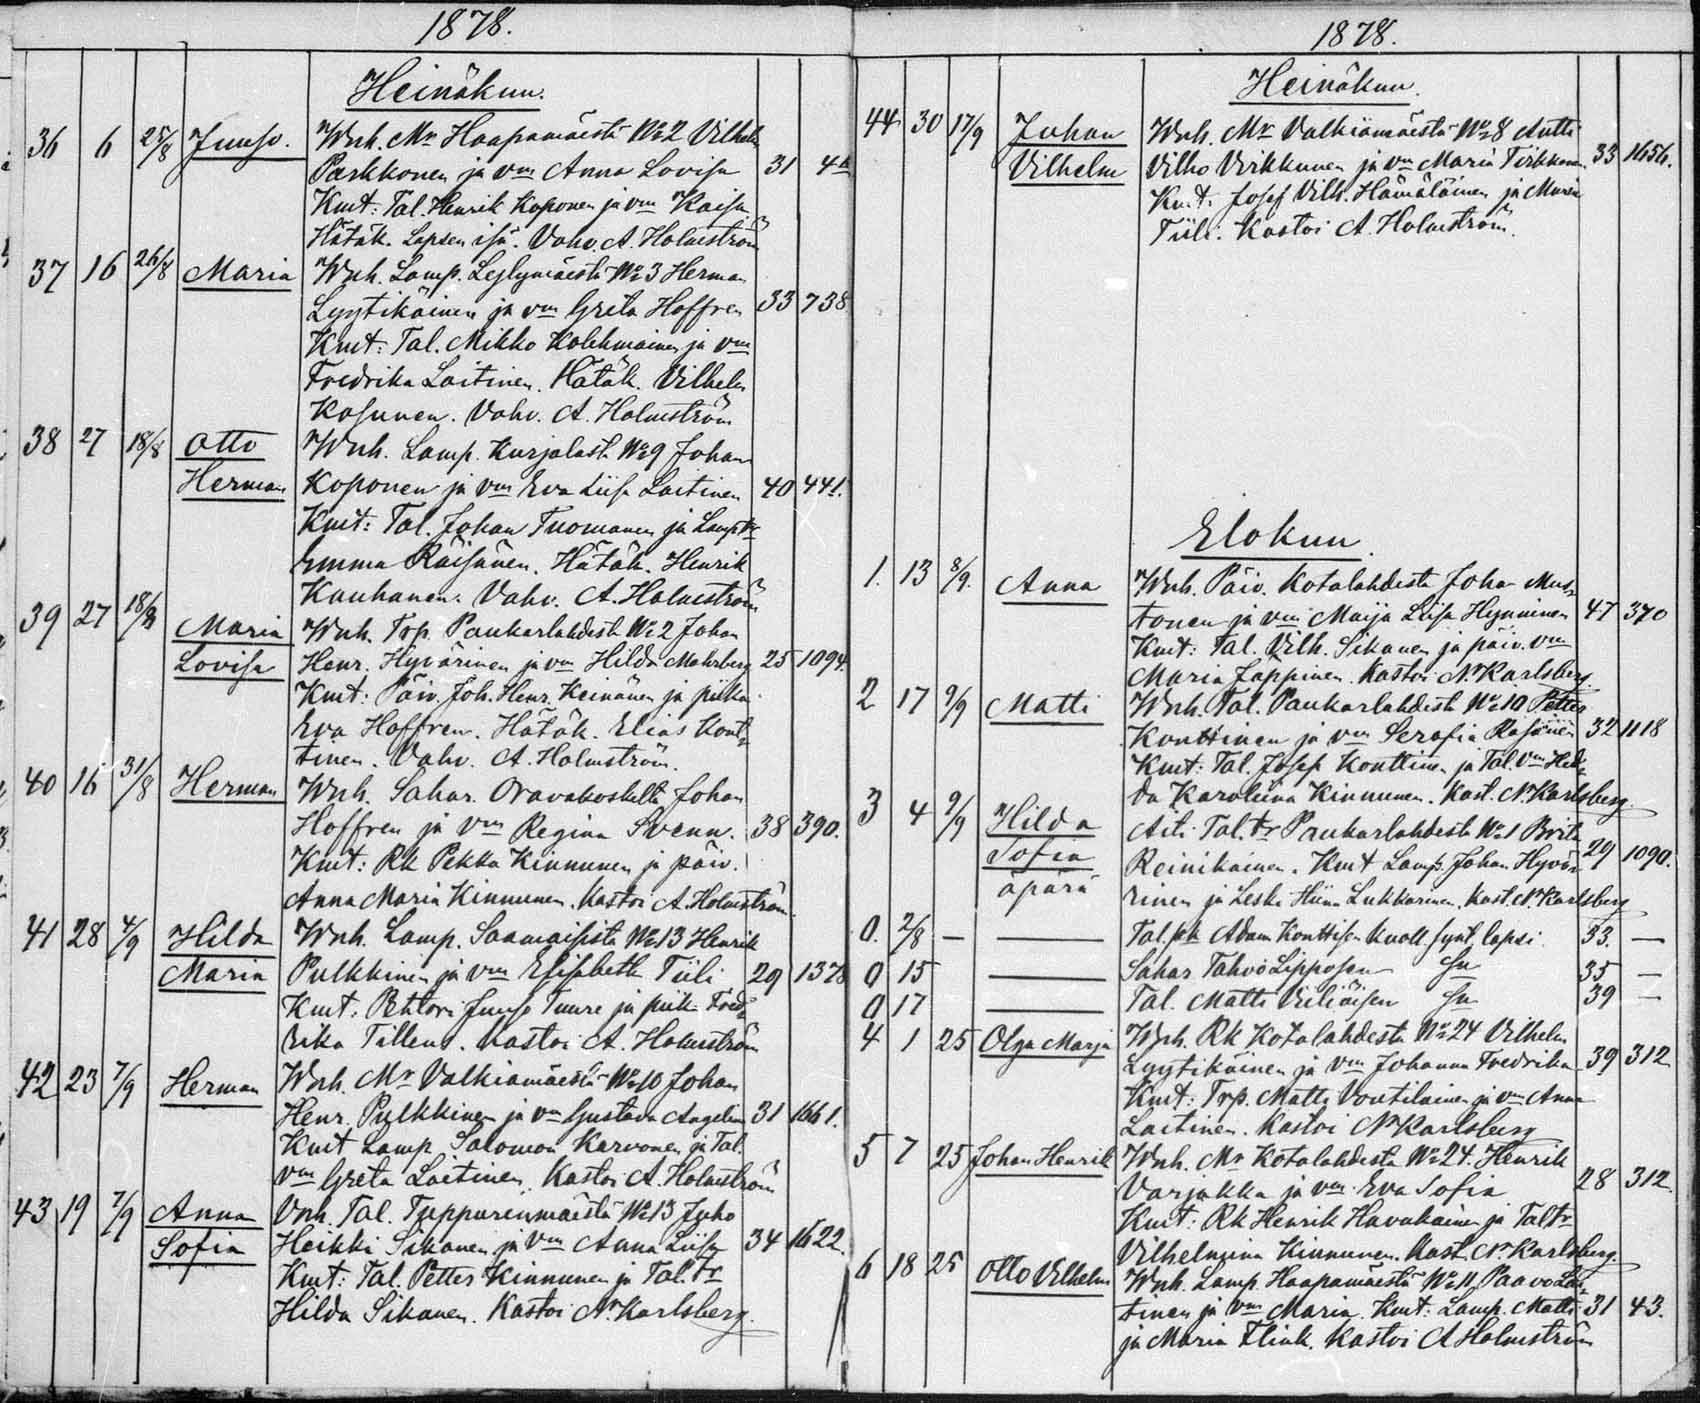 1878.
Heinäkuu.
36 6 25/8 Juuso. Wnh. Mr Haapamäestä No 2 Vilhelm
Parkkonen ja vm Anna Lovisa 31 4
Kmt: Tal. Henrik Koponen ja vm Kaisa
Hätäk. Lapsen isä. Vahv. A. Holmström
37 16 26/8 Maria Wnh. Lamp. No 3 Herman
Lyytikäinen ja vm Greta Hoffren 33 738
Kmt: Tal. Mikko Kolehmainen ja vm
Fredrika Laitinen. Hätäk. Vilhelm
Kosunen. Vahv. A. Holmström
38 27 18/8 Otto Wnh. Lamp. Kurjalasta No 9 Johan
Herman Koponen ja vm Eva Liisa Laitinen 40 441.
Kmt: Tal. Johan Tuomanen ja Lamp tr
Emma Räisänen. Hätäk. Henrik
Kauhanen. Vahv. A. Holmström
39 27 18/8 Maria Wnh. Trp. Paukarlahdesta No 2 Johan
Lovisa Henr. Hyvärinen ja vm Hilda Mahrberg 25 1094.
Kmt: Päiv. Joh. Henr. Keinänen ja piika
Eva Hoffren. Hätäk. Elias Kont-
tinen. Vahv. A. Holmström.
40 16 31/8 Herman Wnh. Sahar. Oravakoskelta Johan
Hoffren ja vm Regina Svenn. 38 390.
Kmt: Rk Pekka Kinnunen ja päiv.
Anna Maria Kinnunen. Kastoi A. Holmström.
41 28 4/9 Hilda Wnh. Lamp. No 13 Henrik
Maria Pulkkinen ja vm Elisabeth Tiili 29 1378
Kmt: Juuso Tuure ja piik. Fred-
rika Tillen. Kastoi A. Holmström
42 23 7/9 Herman Wnh. Mr Valkiamäestä No 10 Johan
Henr. Pulkkinen ja vm Gustava 31 1661.
Kmt Lamp. Salomon Karvonen ja Tal.
vm Greta Laitinen. Kastoi A. Holmström
43 19 7/9 Anna Vnh. Tal. Tuppurinmäestä No 13 Juho
Sofia Heikki Sikanen ja vm Anna Liisa 34 1622.
Kmt: Tal. Petter Kinnunen ja Tal. tr
Hilda Sikanen. Kastoi N. Karlsberg.
1878.
Heinäkuu.
44 30 17/9 Juhan Wnh. Mr Valkiamäestä No 8 Antti
Vilhelm Vilho Virkkunen ja vm Maria 33 1656.
Kmt: Josef Vilh. Hämäläinen ja Maria
Tiili. Kastoi A. Holmström.
Elokuu
1. 13 8/9. Anna Wnh. Päiv. Kotalahdesta Johan Mus-
tonen ja vm Maija Liisa Hynninen 47 370
Kmt: Tal. Vilh. Sikanen ja päiv. vm
Maria Jäppinen. Kastoi N. Karlsberg.
2 17 9/9 Matti Wnh. Tal. Paukarlahdesta No 10 Petter
Konttinen ja vm Serafia Räsänen 32 1118
Kmt: Tal. Josef Konttinen ja Tal. vm Hed-
da Karoliina Kinnunen. Kast. N. Karlsberg
3 4 9/9 Hilda Äiti Tal. tr Paukarlahdesta No 1 Brita
Sofia Reinikainen. Kmt Lamp. Johan Hyvä- 29 1090.
äpärä rinen ja Leski Lukkarinen. Kast. N. Karlsberg
0. 2/8 — — Tal. pk Adam Konttisen kuoll. synt. lapsi 33. —
0 15 — Sahar Tahvo Lipposen Sn 35 —
0 17 — Tal. Matti Sn 39 —
4 1 25 Olga Marja Wnh. Rk Kotalahdesta No 24 Vilhelm
Lyytikäinen ja vm Johanna Fredrika 39 312
Kmt: Trp. Matti Voutilainen ja vm Anna
Laitinen. Kastoi N. Karlsberg
5 7 25 Johan Henrik Wnh. Mr Kotalahdesta No 24. Henrik
Varjakka ja vm Eva Sofia 28 312.
Kmt: Rk Henrik Havukainen ja Tal tr
Vilhelmina Kinnunen. Kast. N. Karlsberg.
6 18 25 Otto Vilhelm Wnh. Lamp. Haapamäestä No 11 Paavo Lai-
tinen ja vm Maria. Kmt: Lamp. Matti 31 43.
ja Maria Flink. Kastoi A Holmström